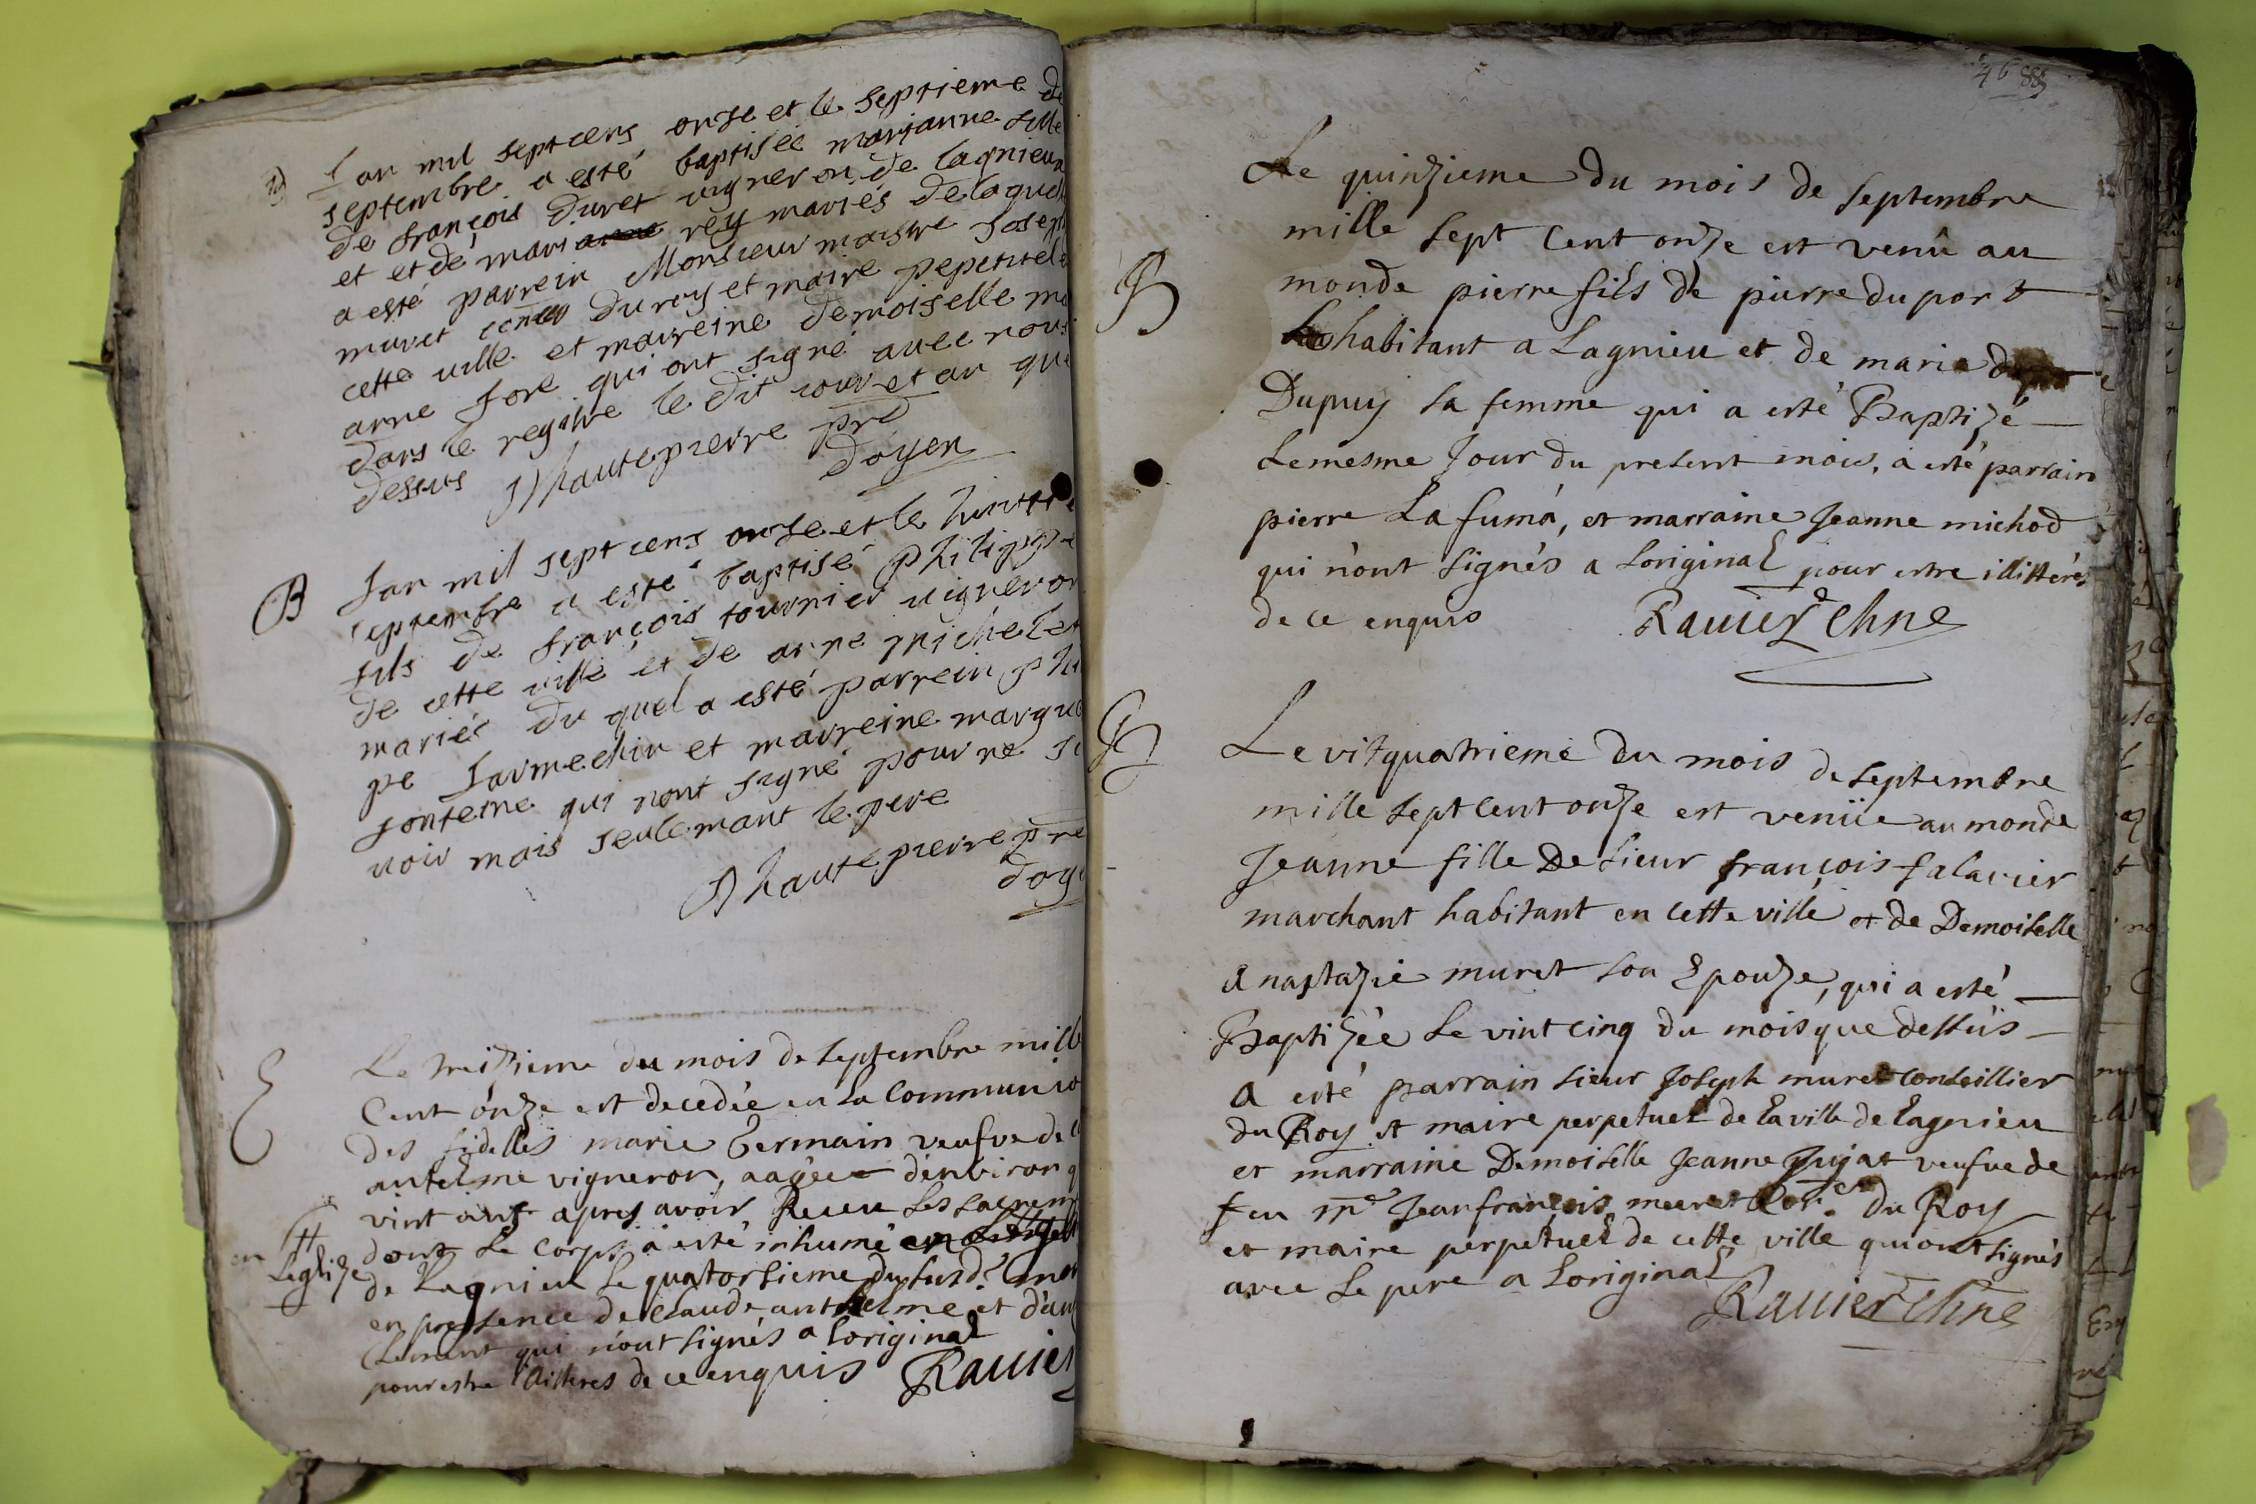 B
Lan mil septcens onse et le septieme de
septembre a esté baptisée marianne fille
de françois duret vigneron de lagnieu
et et de mari anne rey mariés de laquelle
a esté parrein Monsieur maistre Joseph
muret du roy et maire pepetuel de
cette ville et marreine demoiselle ma
anne qui ont signé avec nous
dans le regitre le dit iour et an que
dessus Dhautepierre pre
doyen
B
Lan mil septcens onse et le huittie
septembre a esté baptisé philippe
fils de françois tournier vigneron
de cette ville et de anne michelet
mariés du quel a esté parrein phi
pe Jarmechin et marreine margue
fonteine qui nont signé pour ne sa
voir mais seulemant le pere
Dhautepierre pre
doye
E
Le treizieme du mois de septembre mille
Cent onze est decedée en la Communio
des fidelles marie Germain veufve de
antelme vigneron, aagée denviron
vint ans apres avoir Receu les sacrem
dont Le corps a esté inhumé
en Leglize
de Lagnieu Le quatorsieme du susd. mois
en presence de Claude anthelme et dan
Clement qui n'ont signés a Loriginal
pour estre illiteres de ce enquis Ravier
46
B
Le quinzieme du mois de septembre
mille sept Cent onze est venû au
monde pierre fils de pierre duport
habitant a Lagnieu et de marie
Dupuy sa femme qui a esté Baptizé
Le mesme Jour du present mois, a esté parrain
pierre La fumá, et marraine Jeanne michod
qui n'ont signés a Loriginal pour estre illitterés
de ce enquis Ravier Chne
B
Le vitquatrieme du mois de septembre
mille sept Cent onze est venüe au monde
Jeanne fille De sieur françois falavier
marchant habitant en Cette ville et de Demoiselle
Anastazie muret son Epouze, qui a esté
Baptizée Le vint cinq du mois que dessus
a esté parrain sieur Joseph muret Conseillier
du Roy et maire perpetuel de la ville de Lagnieu
et marraine Demoiselle Jeanne Jujat veufve de
feu mre Jean françois muret Cor. du Roy
et maire perpetuel de cette ville qui ont signés
avec Le pere a Loriginal
Ravier Chne